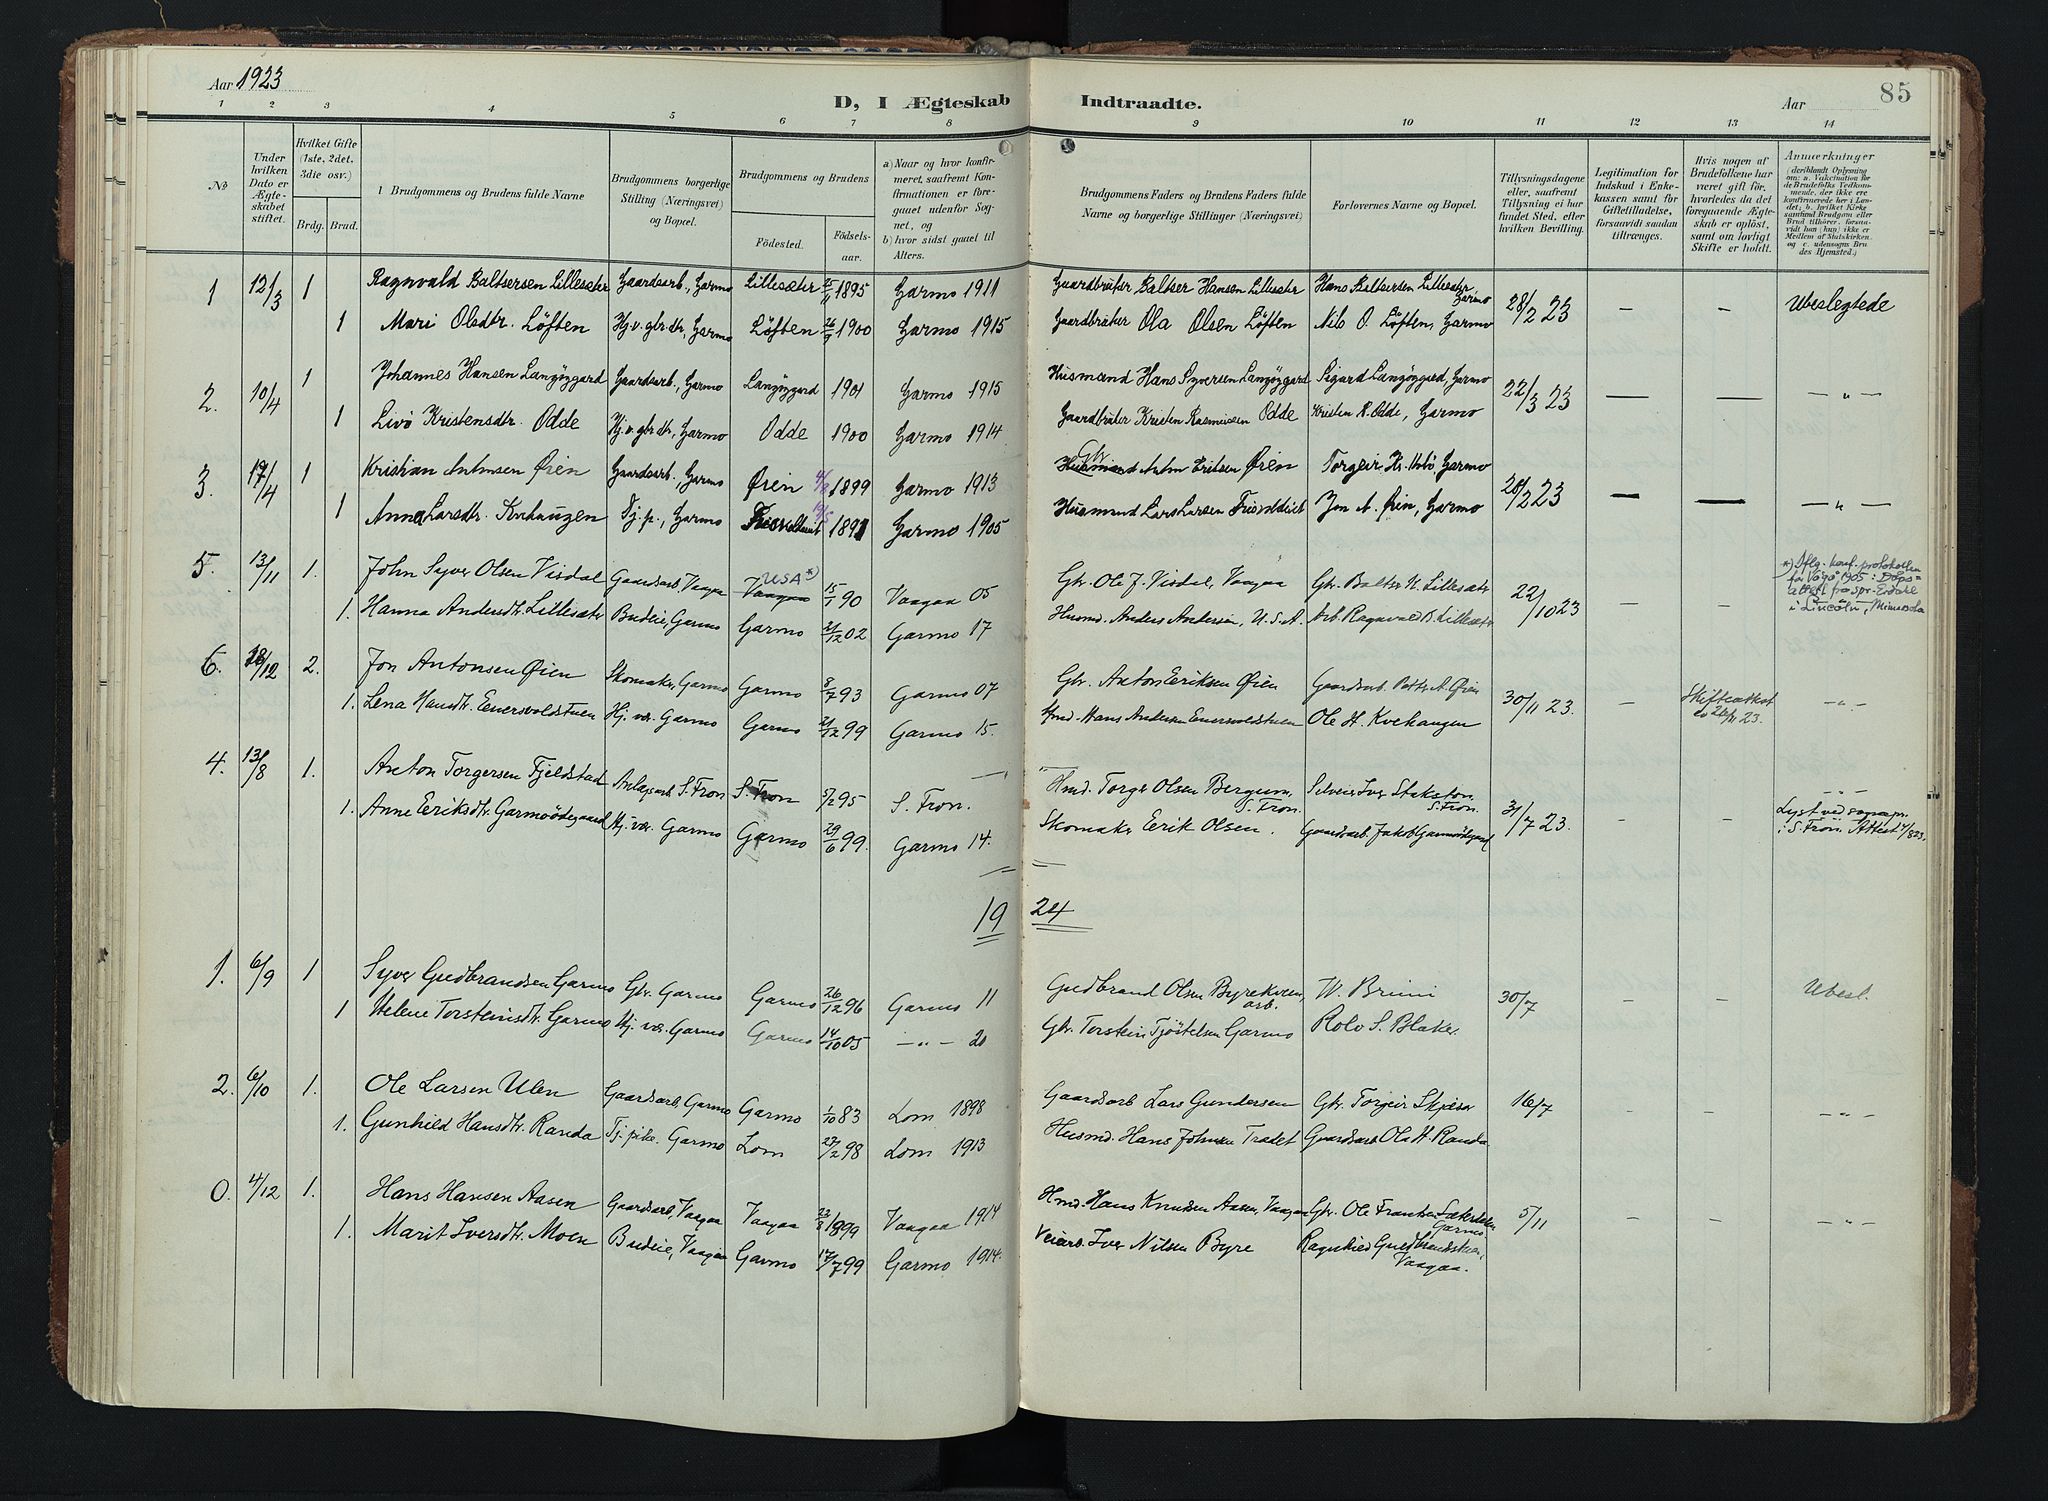 Aar 1923
D, I Ægteskab Indtraadte.
Aar
85
1 2 3 4 5 6 7 8 9 10 11 12 13 14
No
Under hvilken Dato er Ægte-skabet stiftet.
Hvilket Gifte (1ste, 2det, 3die osv.)
Brdg. Brud.
Brudgommens og Brudens fulde Navne
Brudgommens borgerlige Stilling (Næringsvei) og Bopæl.
Brudgommens og Brudens
Fødested.
Fødsels-aar.
a) Naar og hvor konfir-meret, saafremt Kon-firmationen er fore-gaaet udenfor Sog-net, og
b) hvor sidst gaaet til Alters.
Brudgommens Faders og Brudens Faders fulde Navne og borgerlige Stillinger (Næringsvei)
Forlovernes Navne og Bopæl.
Tillysningsdagene eller, saafremt Tillysning ei har fundet Sted, efter hvilken Bevilling.
Legitimation for Indskud i Enke-kassen samt for Giftetilladelse, forsaavidt saadan tiltrænges.
Hvis nogen af Brudefolkene har været gift før, hvorledes da det foregaaende Ægte-skab er opløst, samt om lovligt Skifte er holdt.
Anmerkninger
1 12/3 1 Ragnvald Baltsersen Lillesæter Gaardsarb., Garmo Lillesæter 1895 Garmo 1911 Gaardbruker Baltser Hansen Lillesæter Hans Baltsersen Lillesæter, Garmo 28/2 23 — — Ubeslegtede
1 Mari Olsdtr. Löften Hj.v. gbrdtr, Garmo Löften 1900 Garmo 1915 Gaardbruker Ola Olsen Löften Nils O. Löften, Garmo
2. 10/4 1 Johannes Hansen Langöygard Gaardsarb., Garmo Langöygard 1901 Garmo 1915 Husmand Hans Syversen Langöygard Sigurd Langöygard, Garmo 22/3 23 — — — " —
1 Livö Kristensdtr. Odde Hj.v. gbrdtr, Garmo Odde 1900 Garmo 1914 Gaardbruker Kristen Rasmussen Odde Kristen R. Odde, Garmo
3. 17/4 1 Kristian Antonsen Øien Gaardsarb., Garmo Øien 1899 Garmo 1913 Gbr. Husmand Anton Eriksen Øien Torgeir Garmo 28/2 23 — — — " —
1 Anna Larsdtr. Kvehaugen Tj.p., Garmo 1891 Garmo 1905 Husmand Lars Larsen Jon A. Øien, Garmo
5. 13/11 1. John Syver Olsen Visdal Gaardsarb, Vaagaa Vaagaa USA *) 15/1 90 Vaagaa 05 Gbr. Ole J. Visdal, Vaagaa Gbr. Balter H. Lillesæter 22/10 23 — — *) Iflg. konf. protokollen for Vågå 1905: Dåps=attest fra spr. i Lincoln, Minnesota
1. Hanna Andersdtr. Lillesæter Budeie, Garmo Garmo 02 Garmo 17 Husmd. Anders Andersen, U.S.A. Arb. Ragnvald B. Lillesæter
6. 28/12 2. Jon Antonsen Øien Skomaker, Garmo Garmo 8/7 93 Garmo 07 Gbr. Anton Eriksen Øien Gaardsarb. A. Øien 30/11 23. — Skifteattest av 23. — " —
1. Lena Hansdtr. Enersvoldstuen Hj. vær. Garmo Garmo 99 Garmo 15. Hmd. Hans Andersen Enersvoldstuen Ole H. Kvehaugen
4. 13/8 1. Anton Torgersen Fjeldstad Anlægsarb. S. Fron S. Fron 5/2 95 S. Fron. Hmd. Torger Olsen Bergum, S. Fron. Iver Stakston S. Fron. 31/7 23. — — — " —
1. Anne Eriksdtr. Garmoödegaard Hj. vær. Garmo Garmo 29/6 99. Garmo 14. Skomaker Erik Olsen. Gaardsarb. Jakob Garmoödegaard Lyst ved sognepr. i S. Fron. Attest
19 24
1. 6/9 1 Syver Gudbrandsen Garmo Gbr. Garmo Garmo 26/12 96 Garmo 11 Gudbrand Olsen Byrekveen, arb. W. Brimi 30/7 — — Ubesl.
1 Helene Torsteinsdtr. Garmo Hj. vær. Garmo Garmo 14/10 05 — " — 20 Gbr. Torstein Tjöstelsen Garmo Rolv S. Blaker
2. 6/10 1. Ole Larsen Ulen Gaardsarb, Garmo Garmo 1/10 83 Lom 1898 Gaardsarb Lars Gundersen Gbr. Torgeir Skjæsar 16/7 — — — " —
1. Gunhild Hansdtr. Randa Tj. pike. Garmo Lom 27/2 98 Lom 1913 Husmd. Hans Johnsen Tradet Gaardsarb Ola H. Randa
0. 4/12 1. Hans Hansen Aasen Gaardsarb, Vaagaa Vaagaa 23/8 1899 Vaagaa 1914 Hmd. Hans Knudsen Aasen, Vaagaa Gbr. Ole Frantsen Garmo 5/11 — — — " —
1. Marit Iversdtr. Moen Budeie, Vaagaa Garmo 17/7 99 Garmo 1914. Veiarb. Iver Nilsen Byre Ragnhild Gudbrandstuen, Vaagaa.